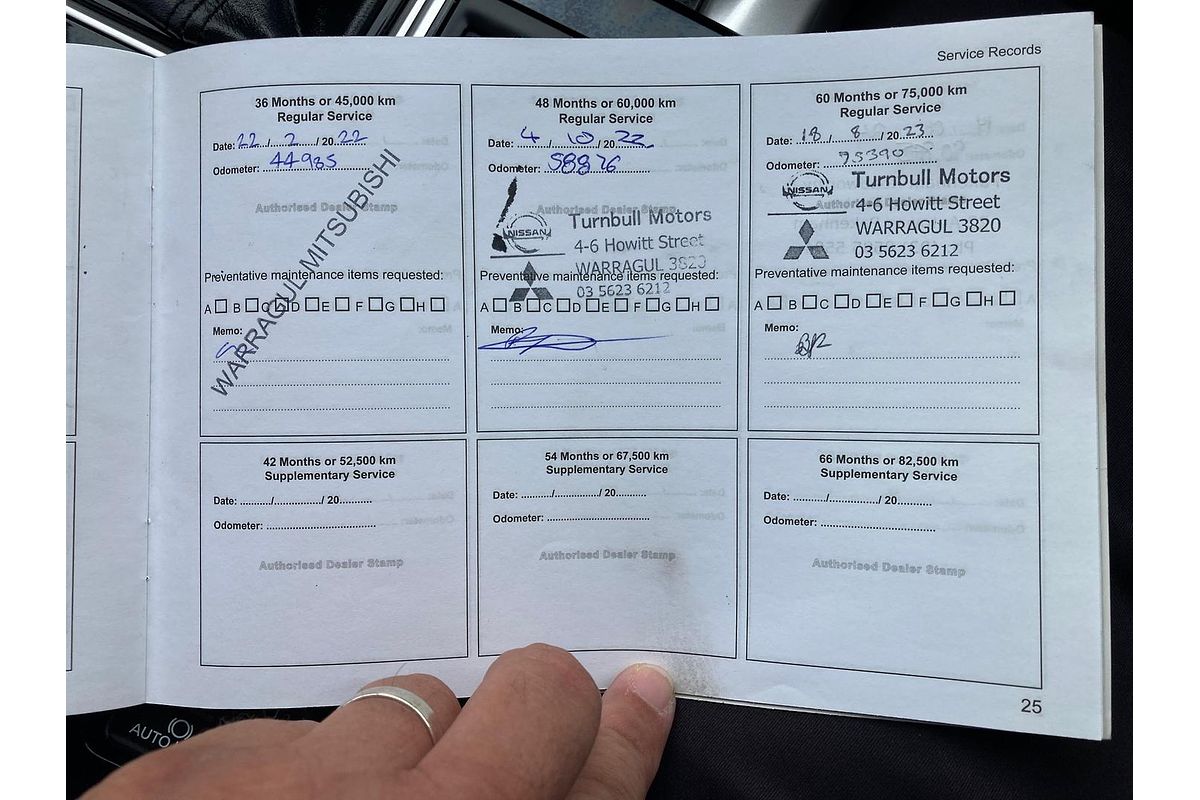 Service Records
36 Months or 45,000 km
Regular Service
Date: 22 / 2 / 20 22
Odometer: 44985
Authorised Dealer Stamp
WARRAGUL MITSUBISHI
Preventative maintenance items requested:
A B C D E F G H
Memo:
48 Months or 60,000 km
Regular Service
Date: 4 / 10 / 20 22
Odometer: 58876
Authorised Dealer Stamp
NISSAN
Turnbull Motors
4-6 Howitt Street
WARRAGUL 3820
03 5623 6212
Preventative maintenance items requested:
A B C D E F G H
Memo:
60 Months or 75,000 km
Regular Service
Date: 18 / 8 / 20 23
Odometer: 75390
NISSAN
Turnbull Motors
Authorised Dealer Stamp
4-6 Howitt Street
WARRAGUL 3820
03 5623 6212
Preventative maintenance items requested:
A B C D E F G H
Memo:
42 Months or 52,500 km
Supplementary Service
Date: ........../................/ 20..........
Odometer: ..................................
Authorised Dealer Stamp
54 Months or 67,500 km
Supplementary Service
Date: ........../................/ 20..........
Odometer: ..................................
Authorised Dealer Stamp
66 Months or 82,500 km
Supplementary Service
Date: ........../................/ 20..........
Odometer: ..................................
Authorised Dealer Stamp
25
AUTO